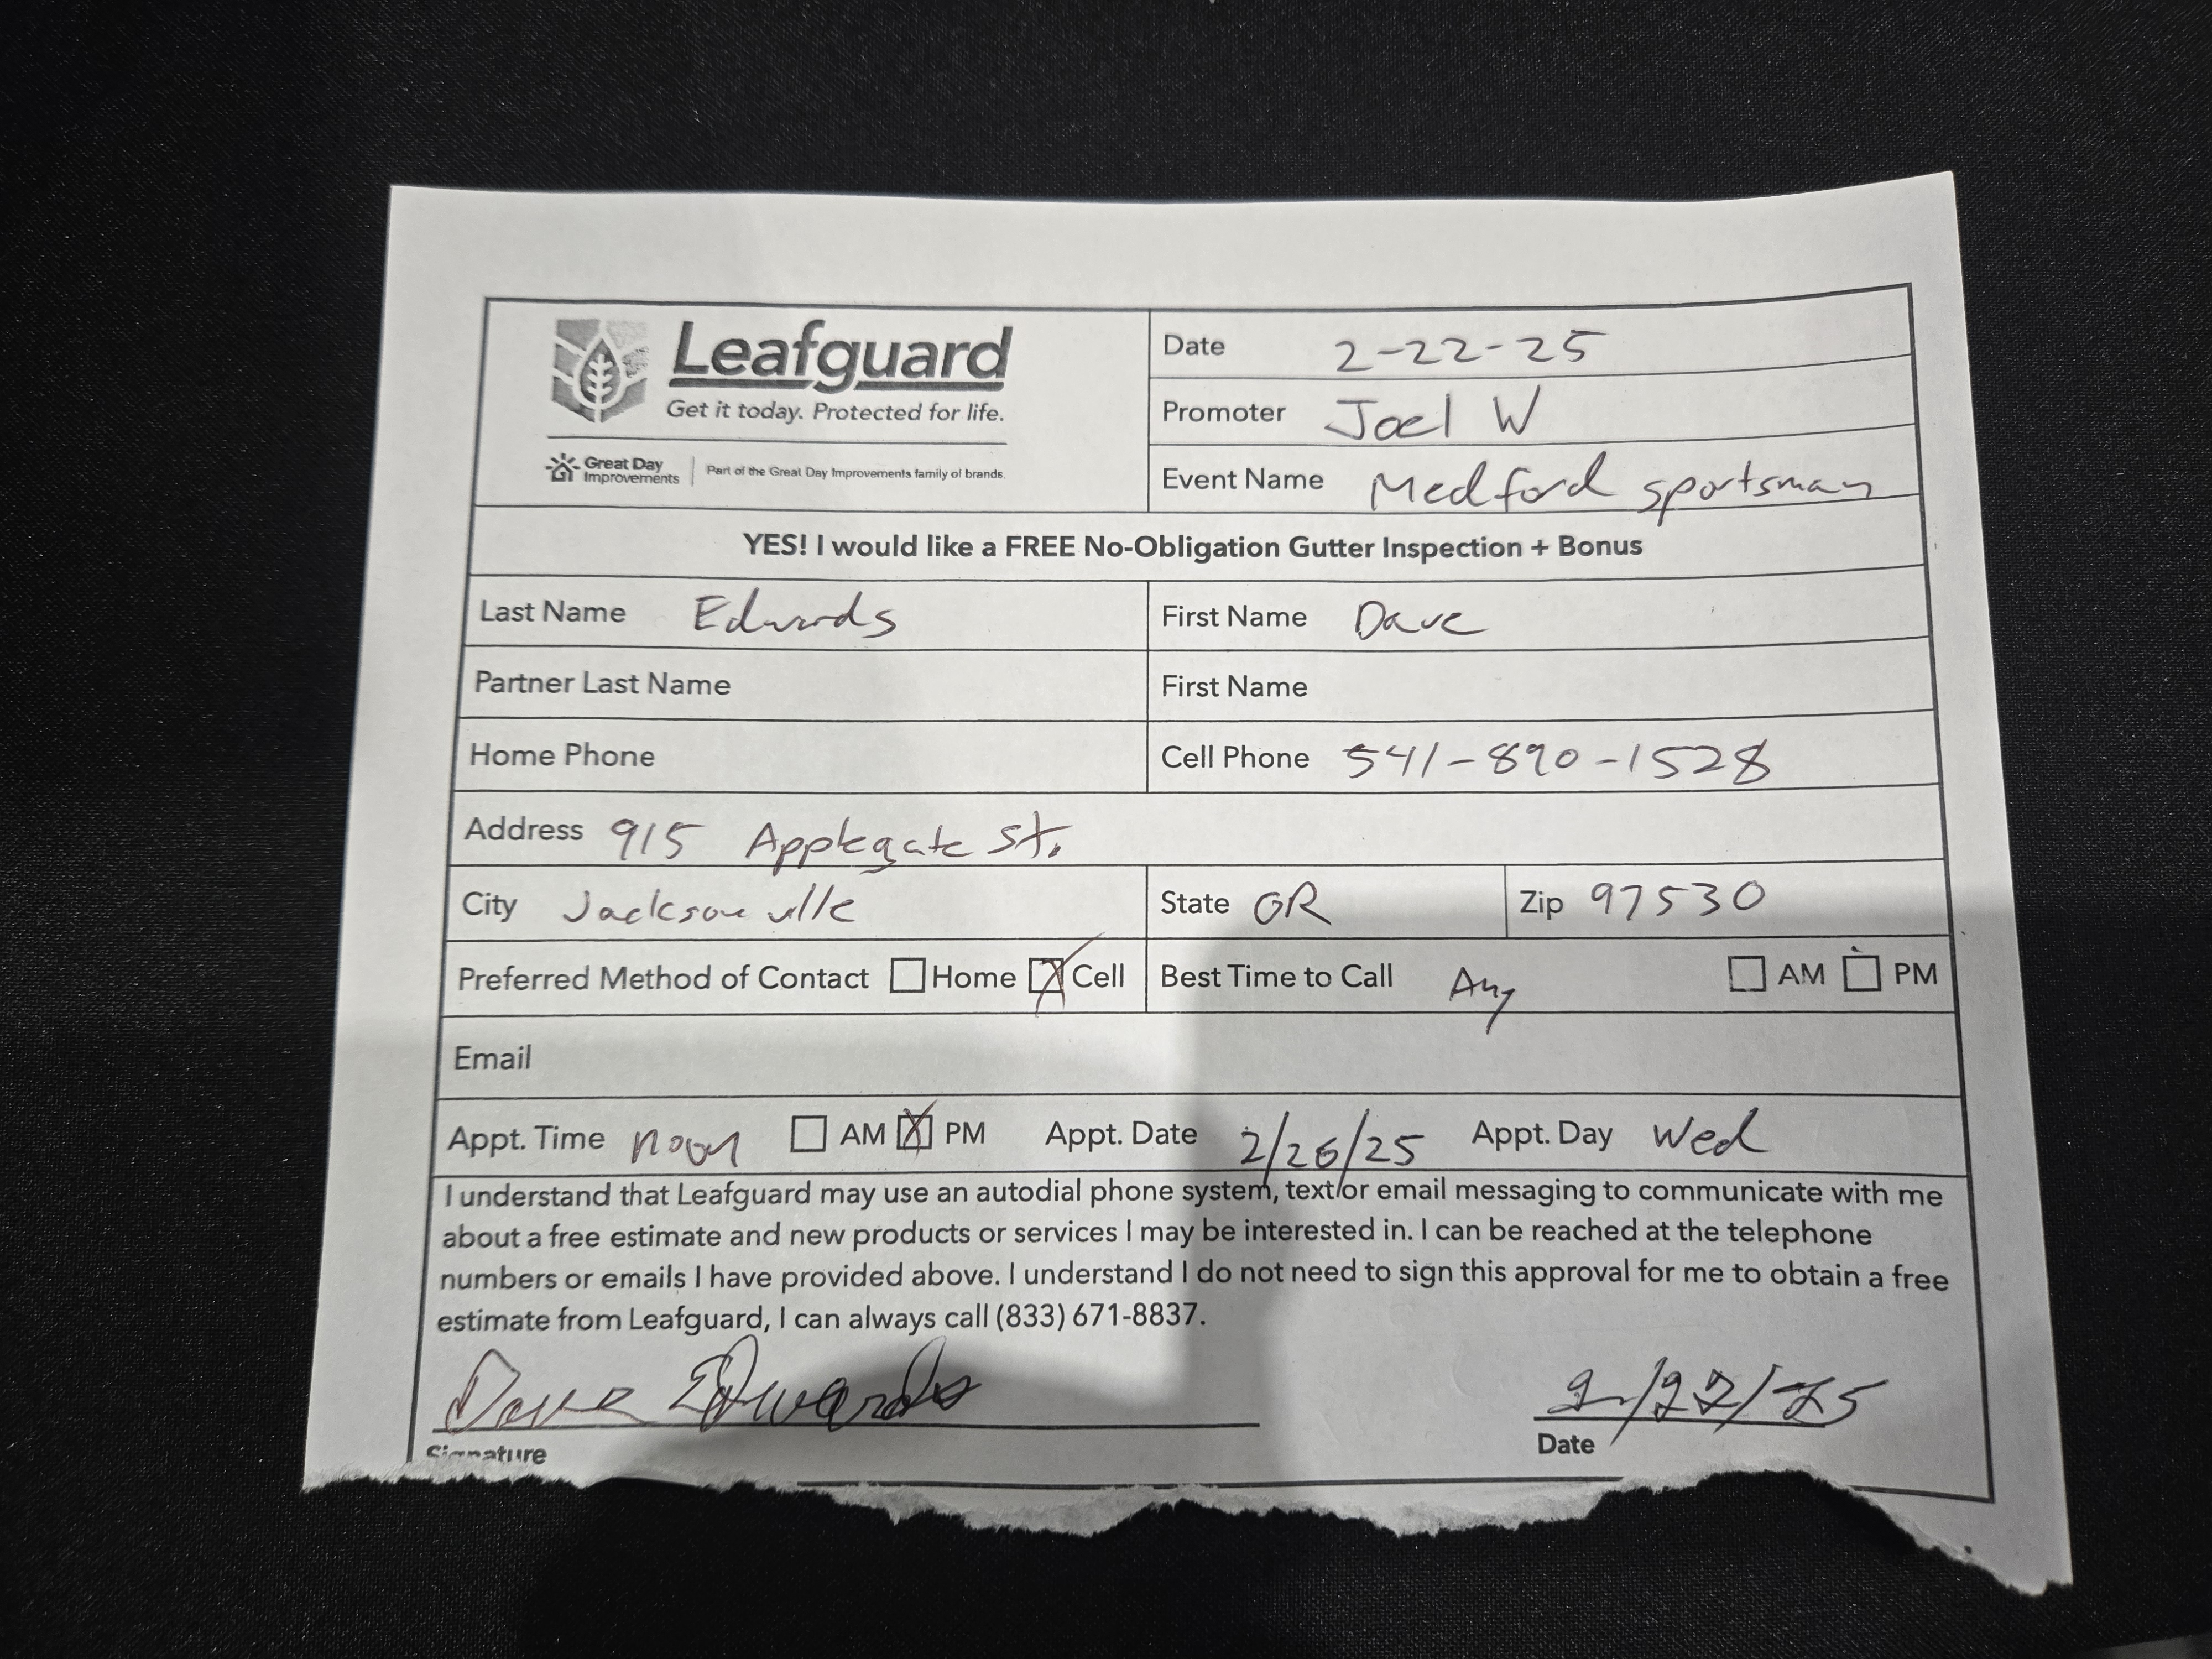 Leafguard
Get it today. Protected for life.
Great Day Improvements
Part of the Great Day Improvements family of brands
Date 2-22-25
Promoter Joel W
Event Name Medford sportsman
YES! I would like a FREE No-Obligation Gutter Inspection + Bonus
Last Name Edwards First Name Dave
Partner Last Name First Name
Home Phone Cell Phone 541-890-1528
Address 915 Applegate st.
City Jacksonville State OR Zip 97530
Preferred Method of Contact Home Cell Best Time to Call Any AM PM
Email
Appt. Time noon AM PM Appt. Date 2/26/25 Appt. Day Wed
I understand that Leafguard may use an autodial phone system, text/or email messaging to communicate with me
about a free estimate and new products or services I may be interested in. I can be reached at the telephone
numbers or emails I have provided above. I understand I do not need to sign this approval for me to obtain a free
estimate from Leafguard, I can always call (833) 671-8837.
Dave Edwards 2/22/25
Signature Date